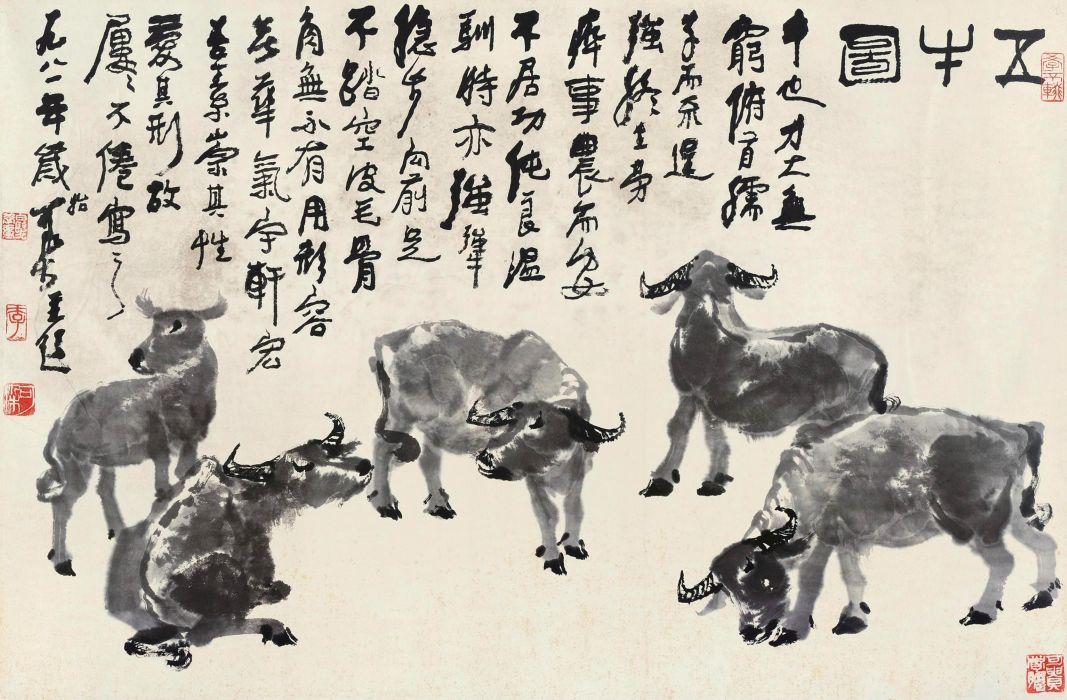 五牛圖
牛也力大無
窮俯首孺
子而不逞
強終生勞
瘁事農而安
不居功純良溫
馴時亦強犟
穩步向前足
不踏空皮毛骨
角無不有用形容
無華氣宇軒宏
吾素崇其性
愛其形故
屢々不倦寫之
一九八一年歲始可染並題